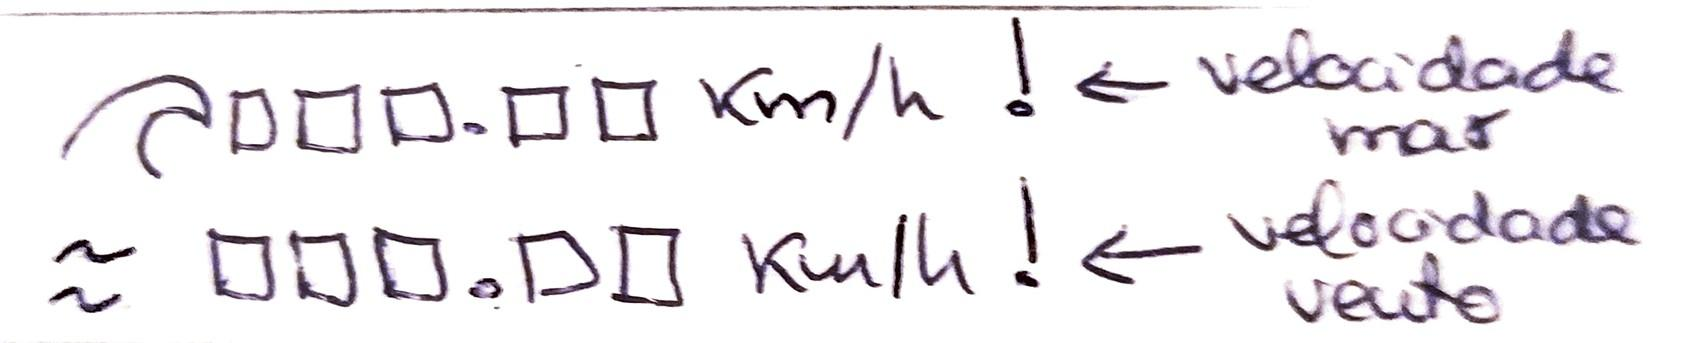 □□□.□□ Km/h ! ← velocidade
mar
≈ □□□.□□ Km/h ! ← velocidade
vento